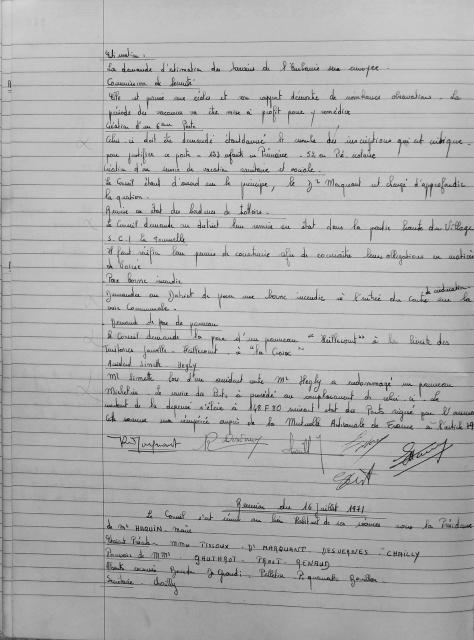 Estimation.
La demande d'estimation du terrain de l'Enfance sera envoyée.
Commission de Sécurité
Elle est passée aux écoles et son rapport démontre de nombreuses observations. La
période des vacances va être mise à profit pour y remédier
Création d'un 6ème Poste
Celui-ci doit être demandé étant donné le nombre des inscriptions qui est critique
pour justifier ce poste - 233 enfants en Primaire - 52 en Pré-scolaire
Création d'un service de vacation sanitaire et sociale.
Le Conseil étant d'accord sur le principe, le Dr Marquant est chargé d'approfondir
la question.
Remise en état des bordures de trottoirs.
Le Conseil demande au district leur remise en état dans la partie haute du Village
S.C.I. La Tournelle
Il faut vérifier leur permis de construire afin de connaître leurs obligations en matière
de Voirie
Pose borne incendie
Demander au District de poser une borne incendie à l'entrée du Centre de rééducation sur la
voie Communale.
Demande de pose de panneau
Le Conseil demande la pose d'un panneau "Haillecourt" à la limite des
territoires - Haillecourt - à "la Croix"
Accident Simette Hegly
Mr Simette lors d'un accident avec Mr Hegly a endommagé un panneau
Michelin. Le service des Ponts a procédé au remplacement de celui-ci. Le
montant de la dépense s'élève à 148 F 30 suivant état des Ponts signé par
Cette somme sera récupérée auprès de la Mutuelle Artisanale de France à l'article
Réunion du 16 Juillet 1971
Le Conseil s'est réuni au lieu habituel de ses séances sous la Présidence
de Mr HAQUIN - maire
Etaient Présents - MMrs TISSOUX - Dr MARQUANT - DESVERNES - CHAILLY
Pouvoirs de MMrs GAUTHROT - PROIT - RENAUD
Absents excusés
Secrétaire Chailly